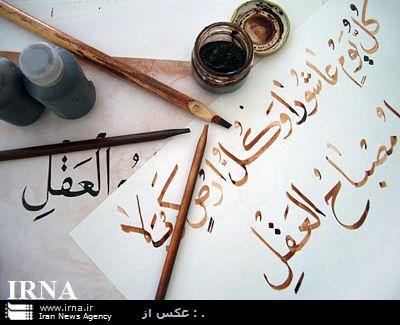 كُلُّ يَوْمٍ عاشُورا وَ كُلُّ اَرْضٍ كَربَلا
مِصْباحُ العَقلِ
العَقْلِ
IRNA
www.irna.ir
Iran News Agency
. : عکس از